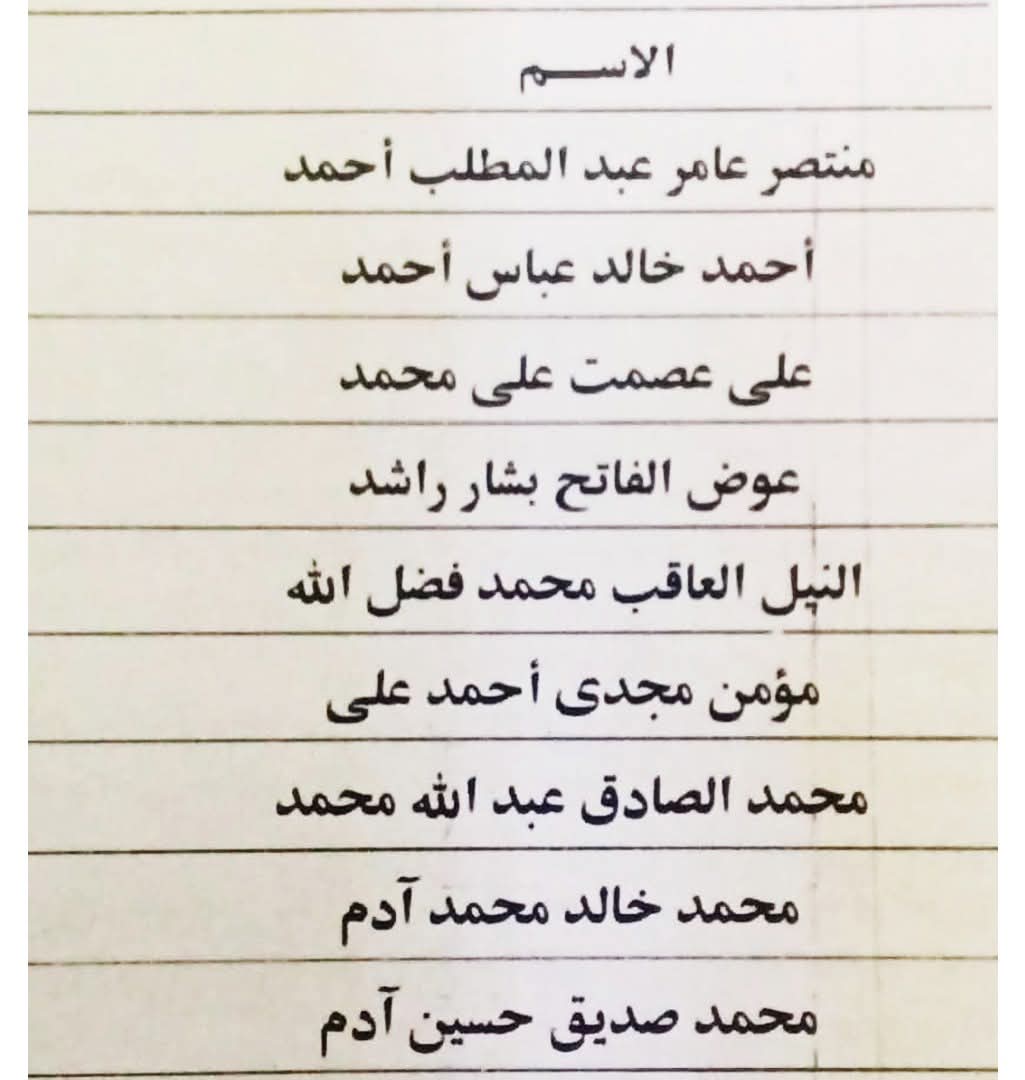 الاسم
منتصر عامر عبد المطلب أحمد
أحمد خالد عباس أحمد
على عصمت على محمد
عوض الفاتح بشار راشد
النيل العاقب محمد فضل الله
مؤمن مجدى أحمد على
محمد الصادق عبد الله محمد
محمد خالد محمد آدم
محمد صديق حسين آدم